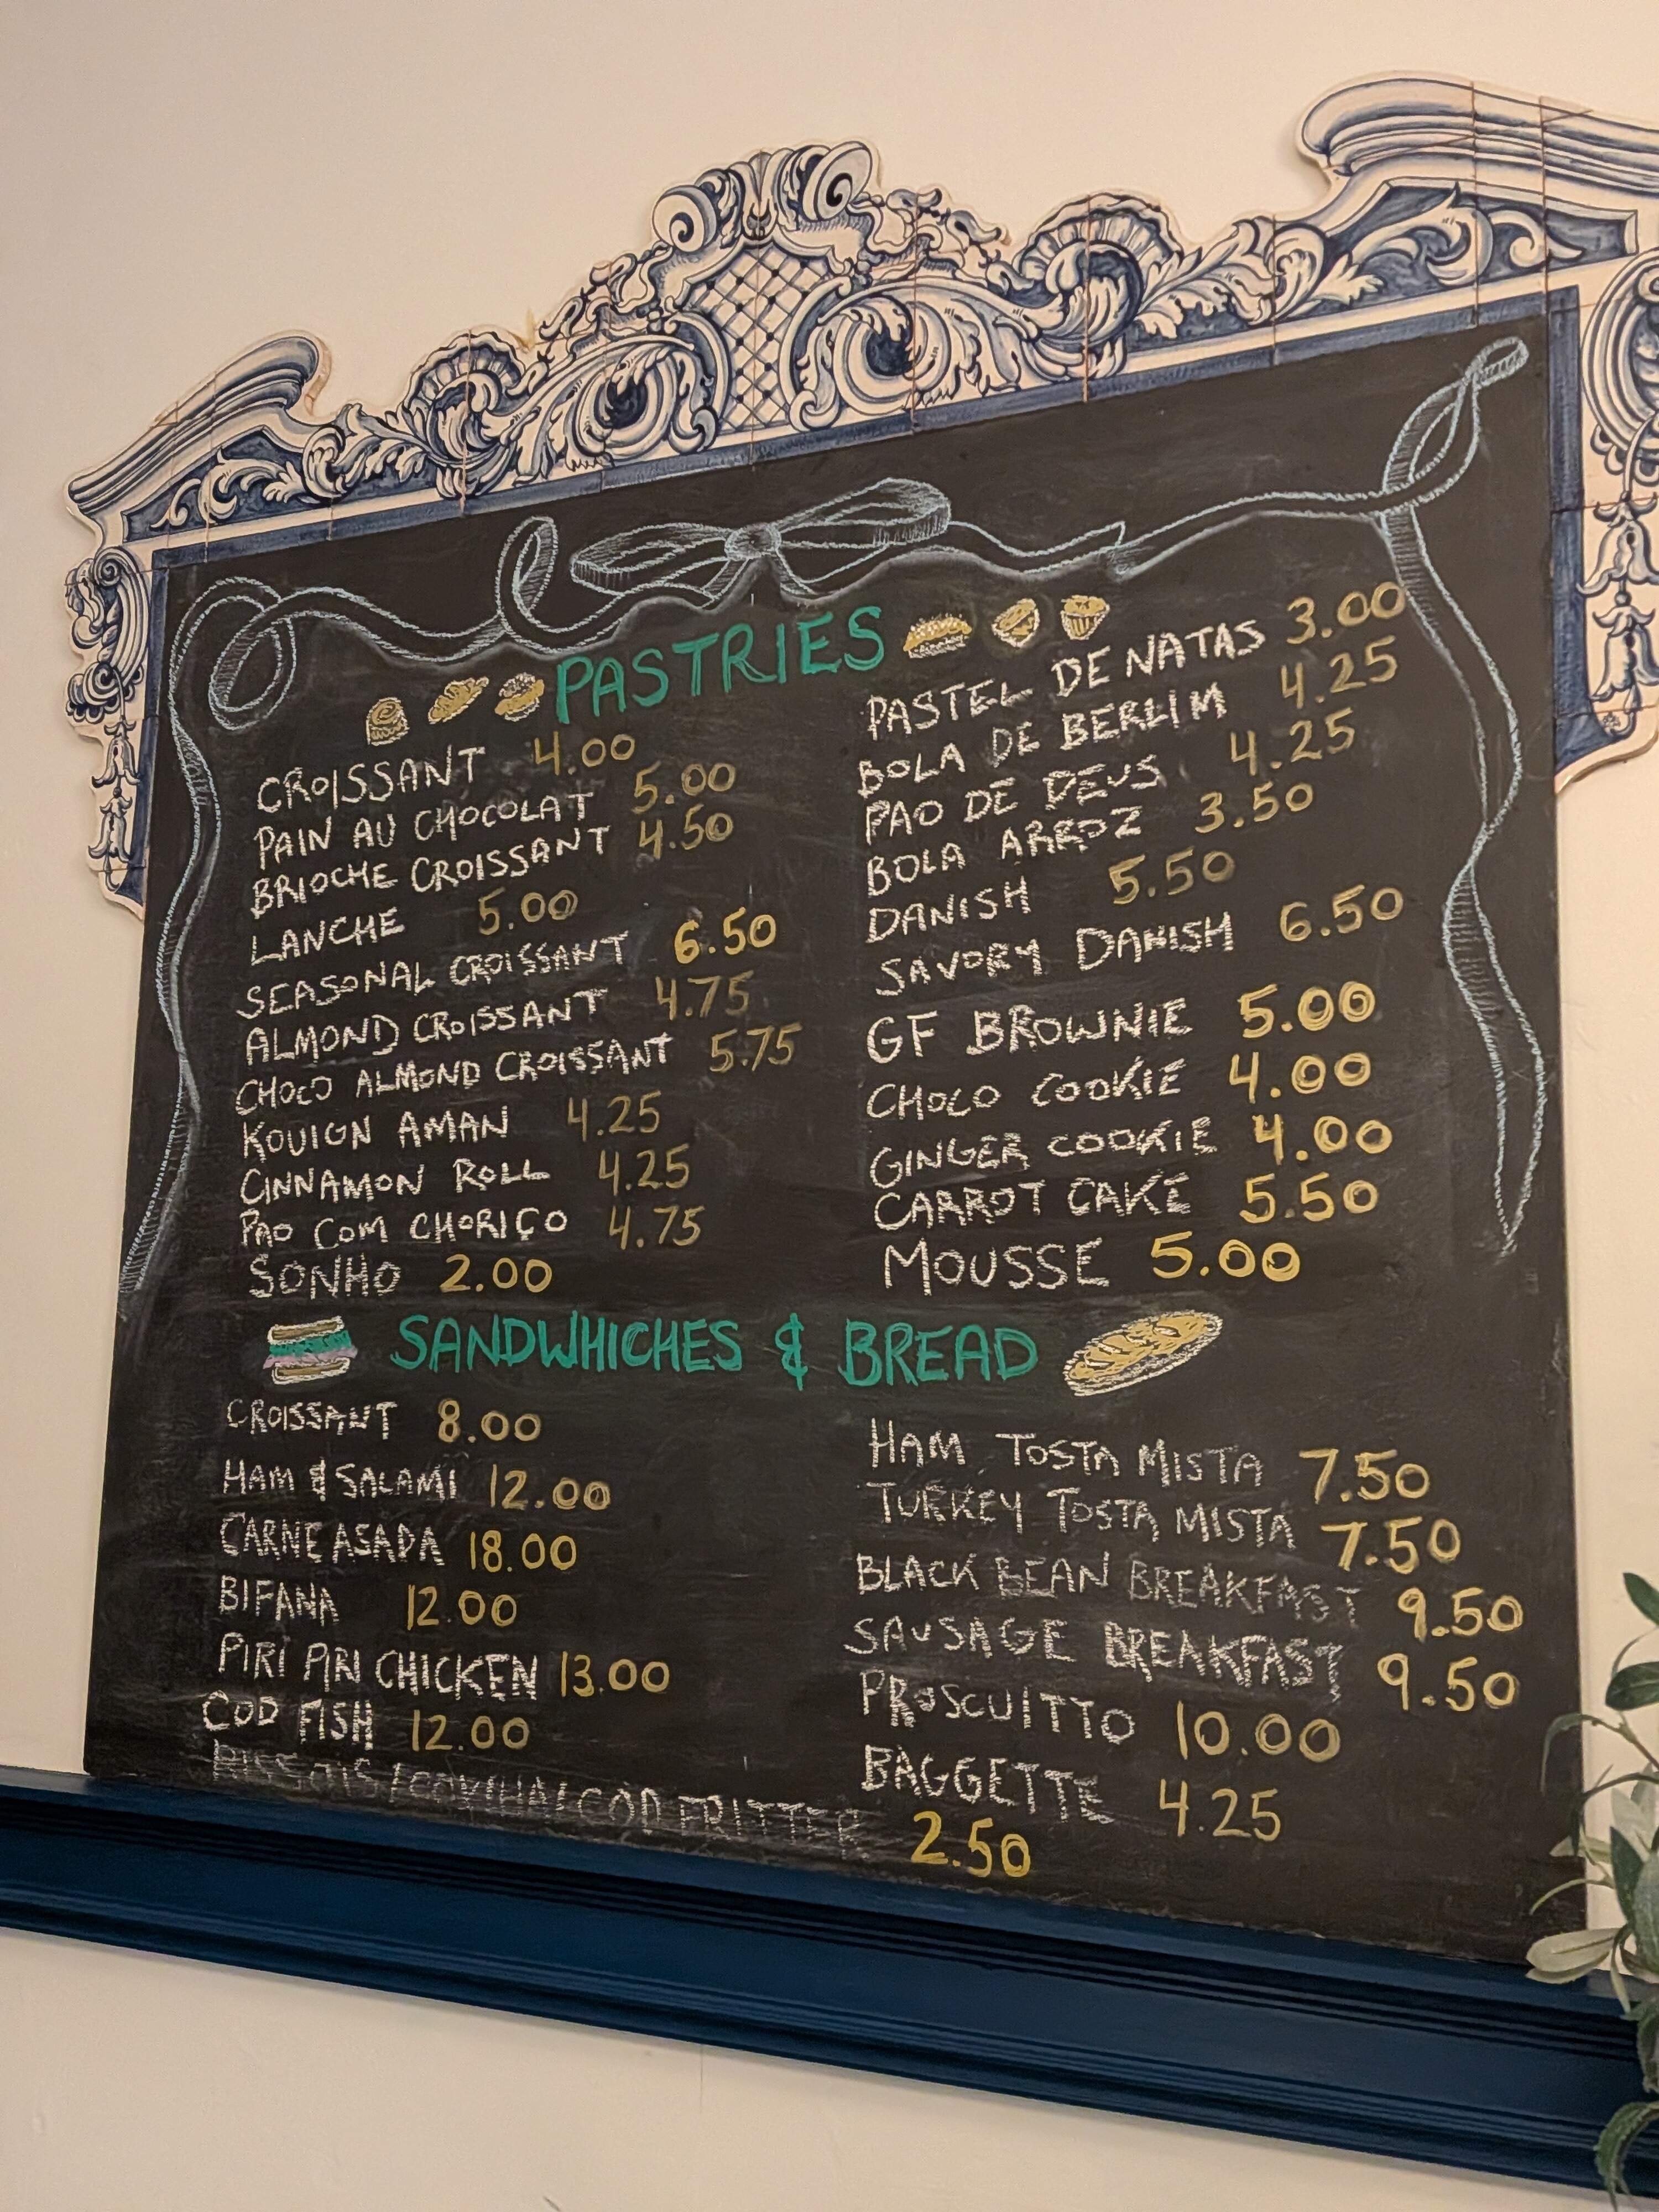 PASTRIES
CROISSANT 4.00
PAIN AU CHOCOLAT 5.00
BRIOCHE CROISSANT 4.50
LANCHE 5.00
SEASONAL CROISSANT 6.50
ALMOND CROISSANT 4.75
CHOCO ALMOND CROISSANT 5.75
KOUIGN AMAN 4.25
CINNAMON ROLL 4.25
PAO COM CHORIÇO 4.75
SONHO 2.00
PASTEL DE NATAS 3.00
BOLA DE BERLIM 4.25
PAO DE DEUS 4.25
BOLA ARROZ 3.50
DANISH 5.50
SAVORY DANISH 6.50
GF BROWNIE 5.00
CHOCO COOKIE 4.00
GINGER COOKIE 4.00
CARROT CAKE 5.50
MOUSSE 5.00
SANDWHICHES & BREAD
CROISSANT 8.00
HAM & SALAMI 12.00
CARNE ASADA 18.00
BIFANA 12.00
PIRI PIRI CHICKEN 13.00
COD FISH 12.00
COD FRITTER 2.50
HAM TOSTA MISTA 7.50
TURKEY TOSTA MISTA 7.50
BLACK BEAN BREAKFAST 9.50
SAUSAGE BREAKFAST 9.50
PROSCUITTO 10.00
BAGGETTE 4.25